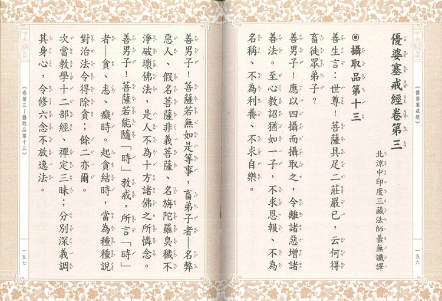 優婆塞戒經卷第三
北涼中印度三藏法師曇無讖譯
◎攝取品第十三
善生言：世尊！菩薩具足二莊嚴已，云何得
畜徒眾弟子？
善男子！應以四攝而攝取之，令離諸惡增諸
善法。至心教詔猶如一子，不求恩報、不為
名稱、不為利養、不求自樂。
善男子！菩薩若無如是等事，畜弟子者—名弊
惡人、假名菩薩非義菩薩、名旃陀羅臭穢不
淨破壞佛法，是人不為十方諸佛之所憐念。
善男子！菩薩若能隨「時」教戒，所言「時」
者—貪、恚、癡時。起貪結時，當為種種說
對治法令得除貪；餘二亦爾。
次當教學十二部經，禪定三昧；分別深義調
其身心，令修六念不放逸法。